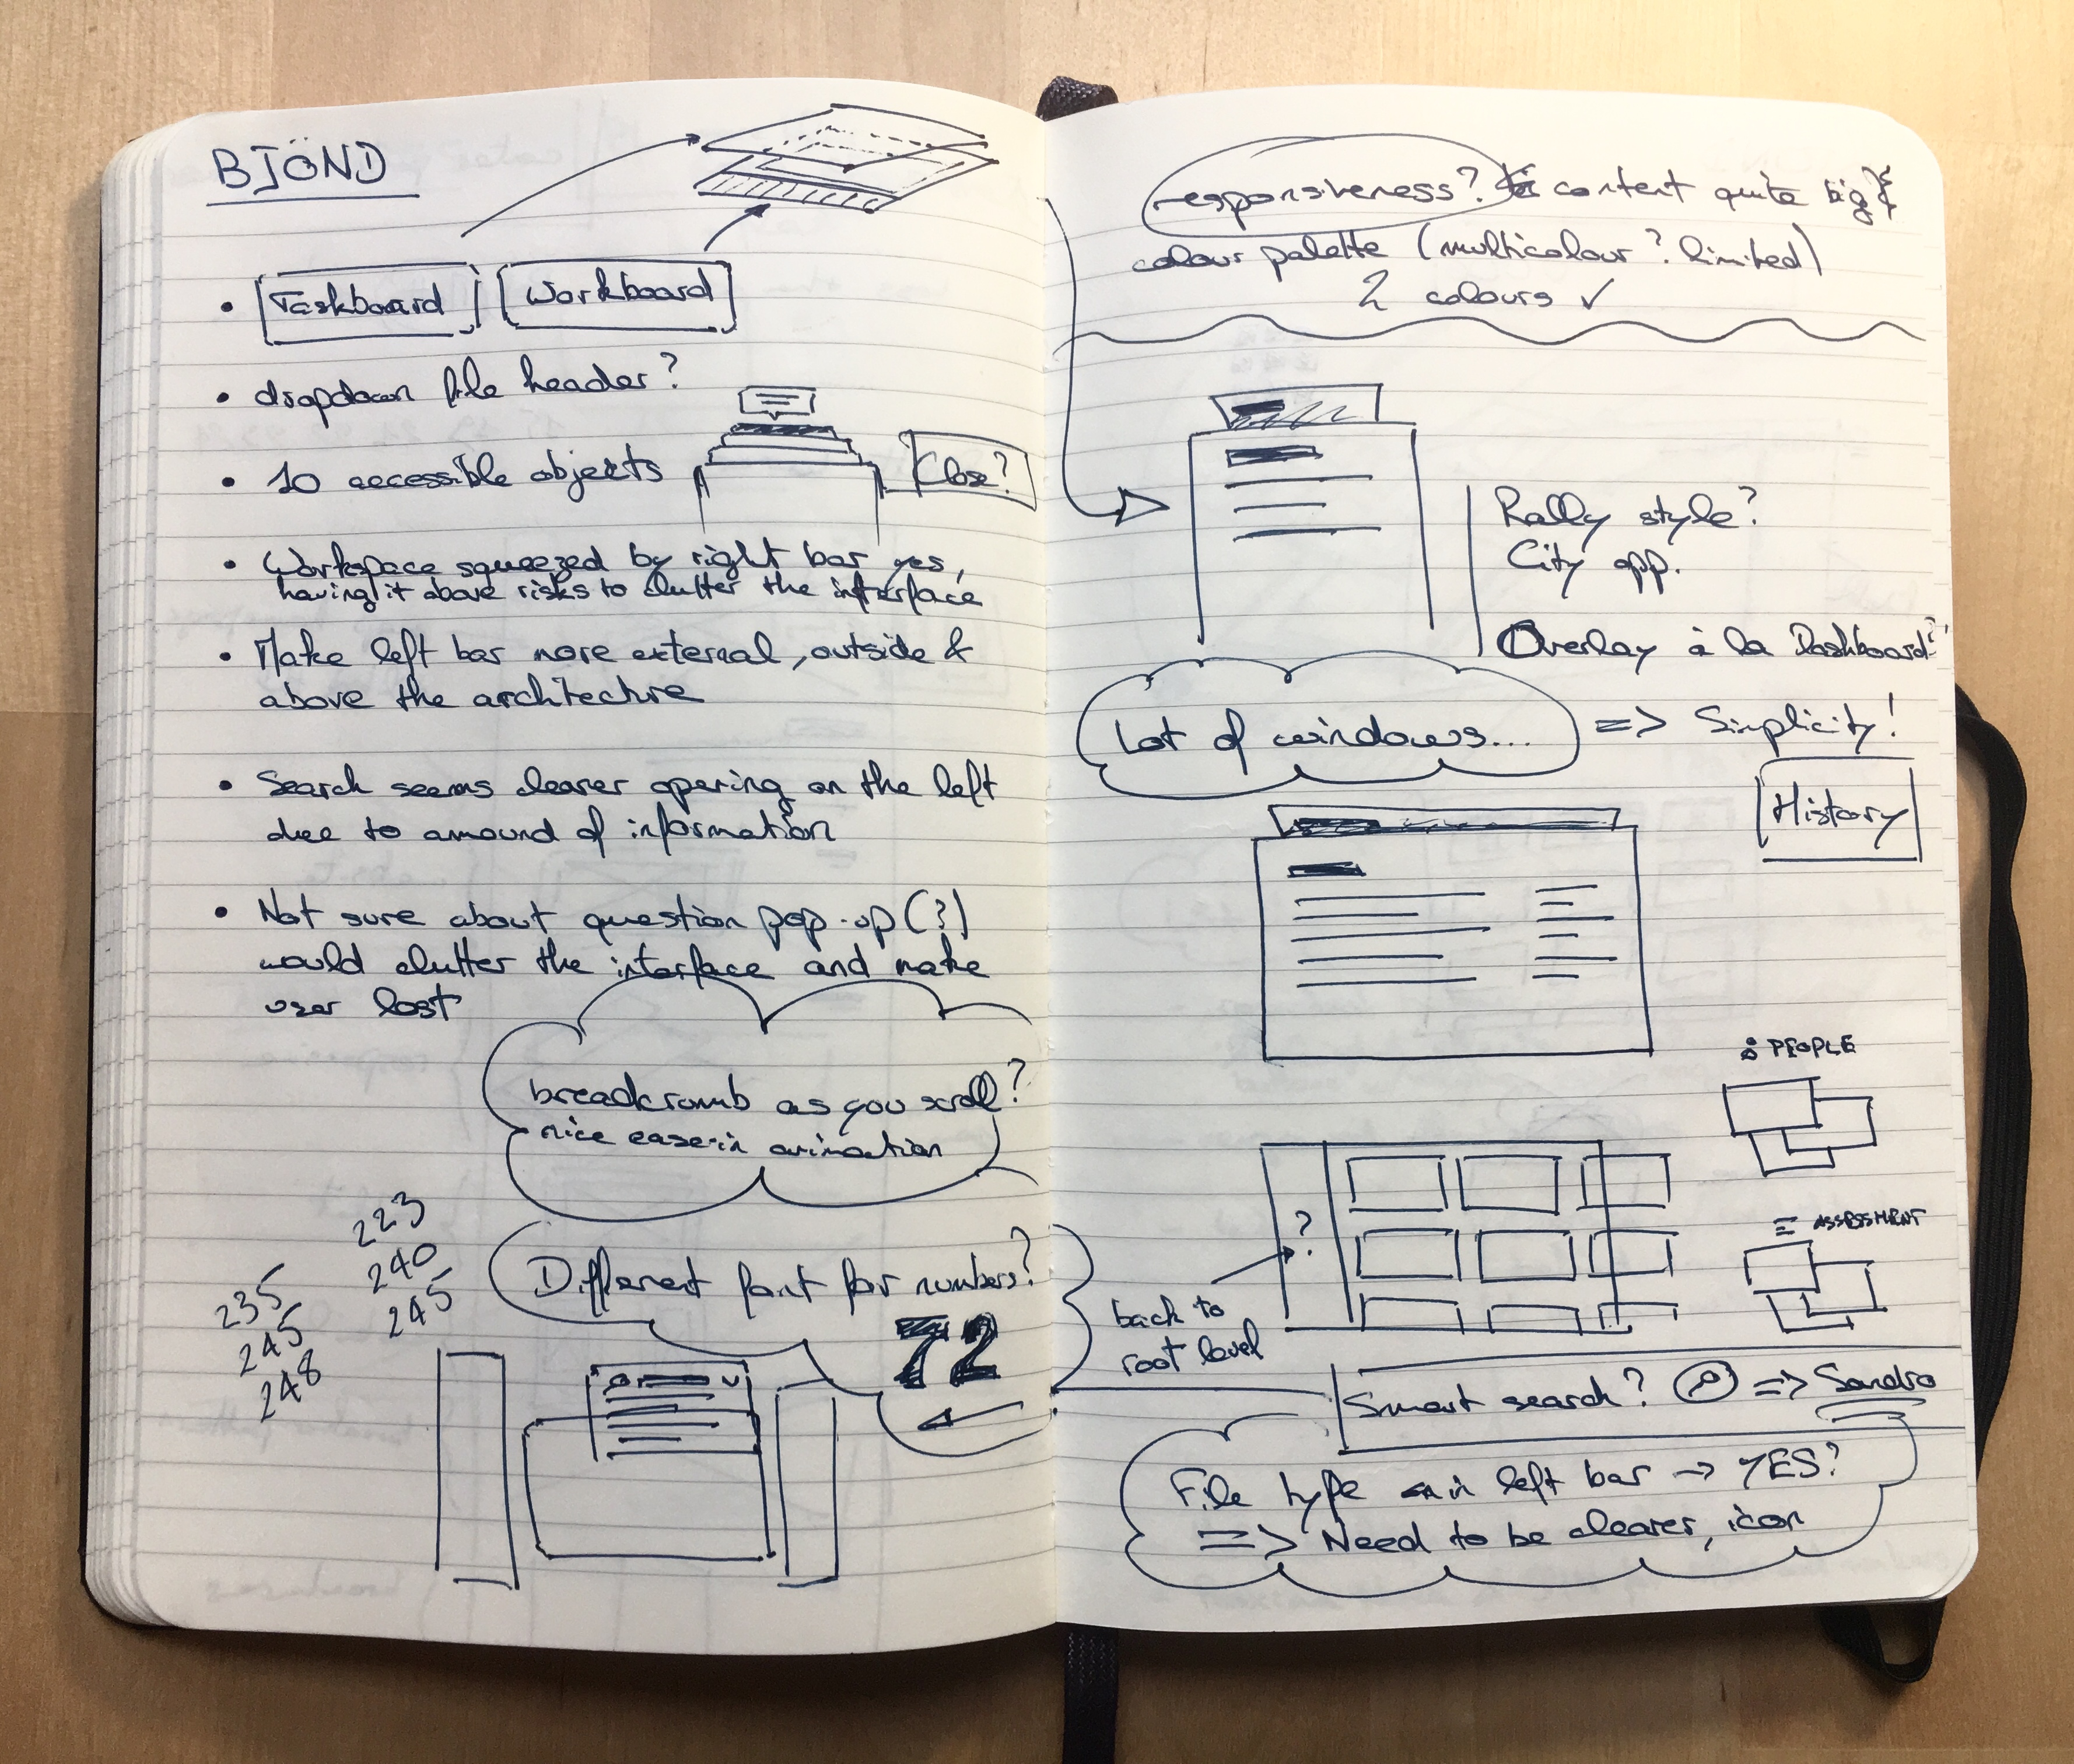 BJÖND
• Taskboard Workboard
• dropdown file header?
• 10 accessible objects
Close?
• Workspace squeezed by right bar yes,
having it above risks to clutter the interface
• Make left bar more external, outside &
above the architecture
• Search seems clearer opening on the left
due to amound of information
• Not sure about question pop-up (?)
would clutter the interface and make
user lost
breadcrumb as you scroll?
nice ease-in animation
223
240
245
235
245
248
Different font for numbers?
72
responsiveness? content quite big
colour palette (multicolour? limited)
2 colours ✓
Rally style?
City app.
Overlay à la Dashboard?
Lot of windows... => Simplicity!
History
PEOPLE
?
ASSESSMENT
back to
root level
Smart search? => Sandro
File type in left bar → YES?
=> Need to be clearer, icon